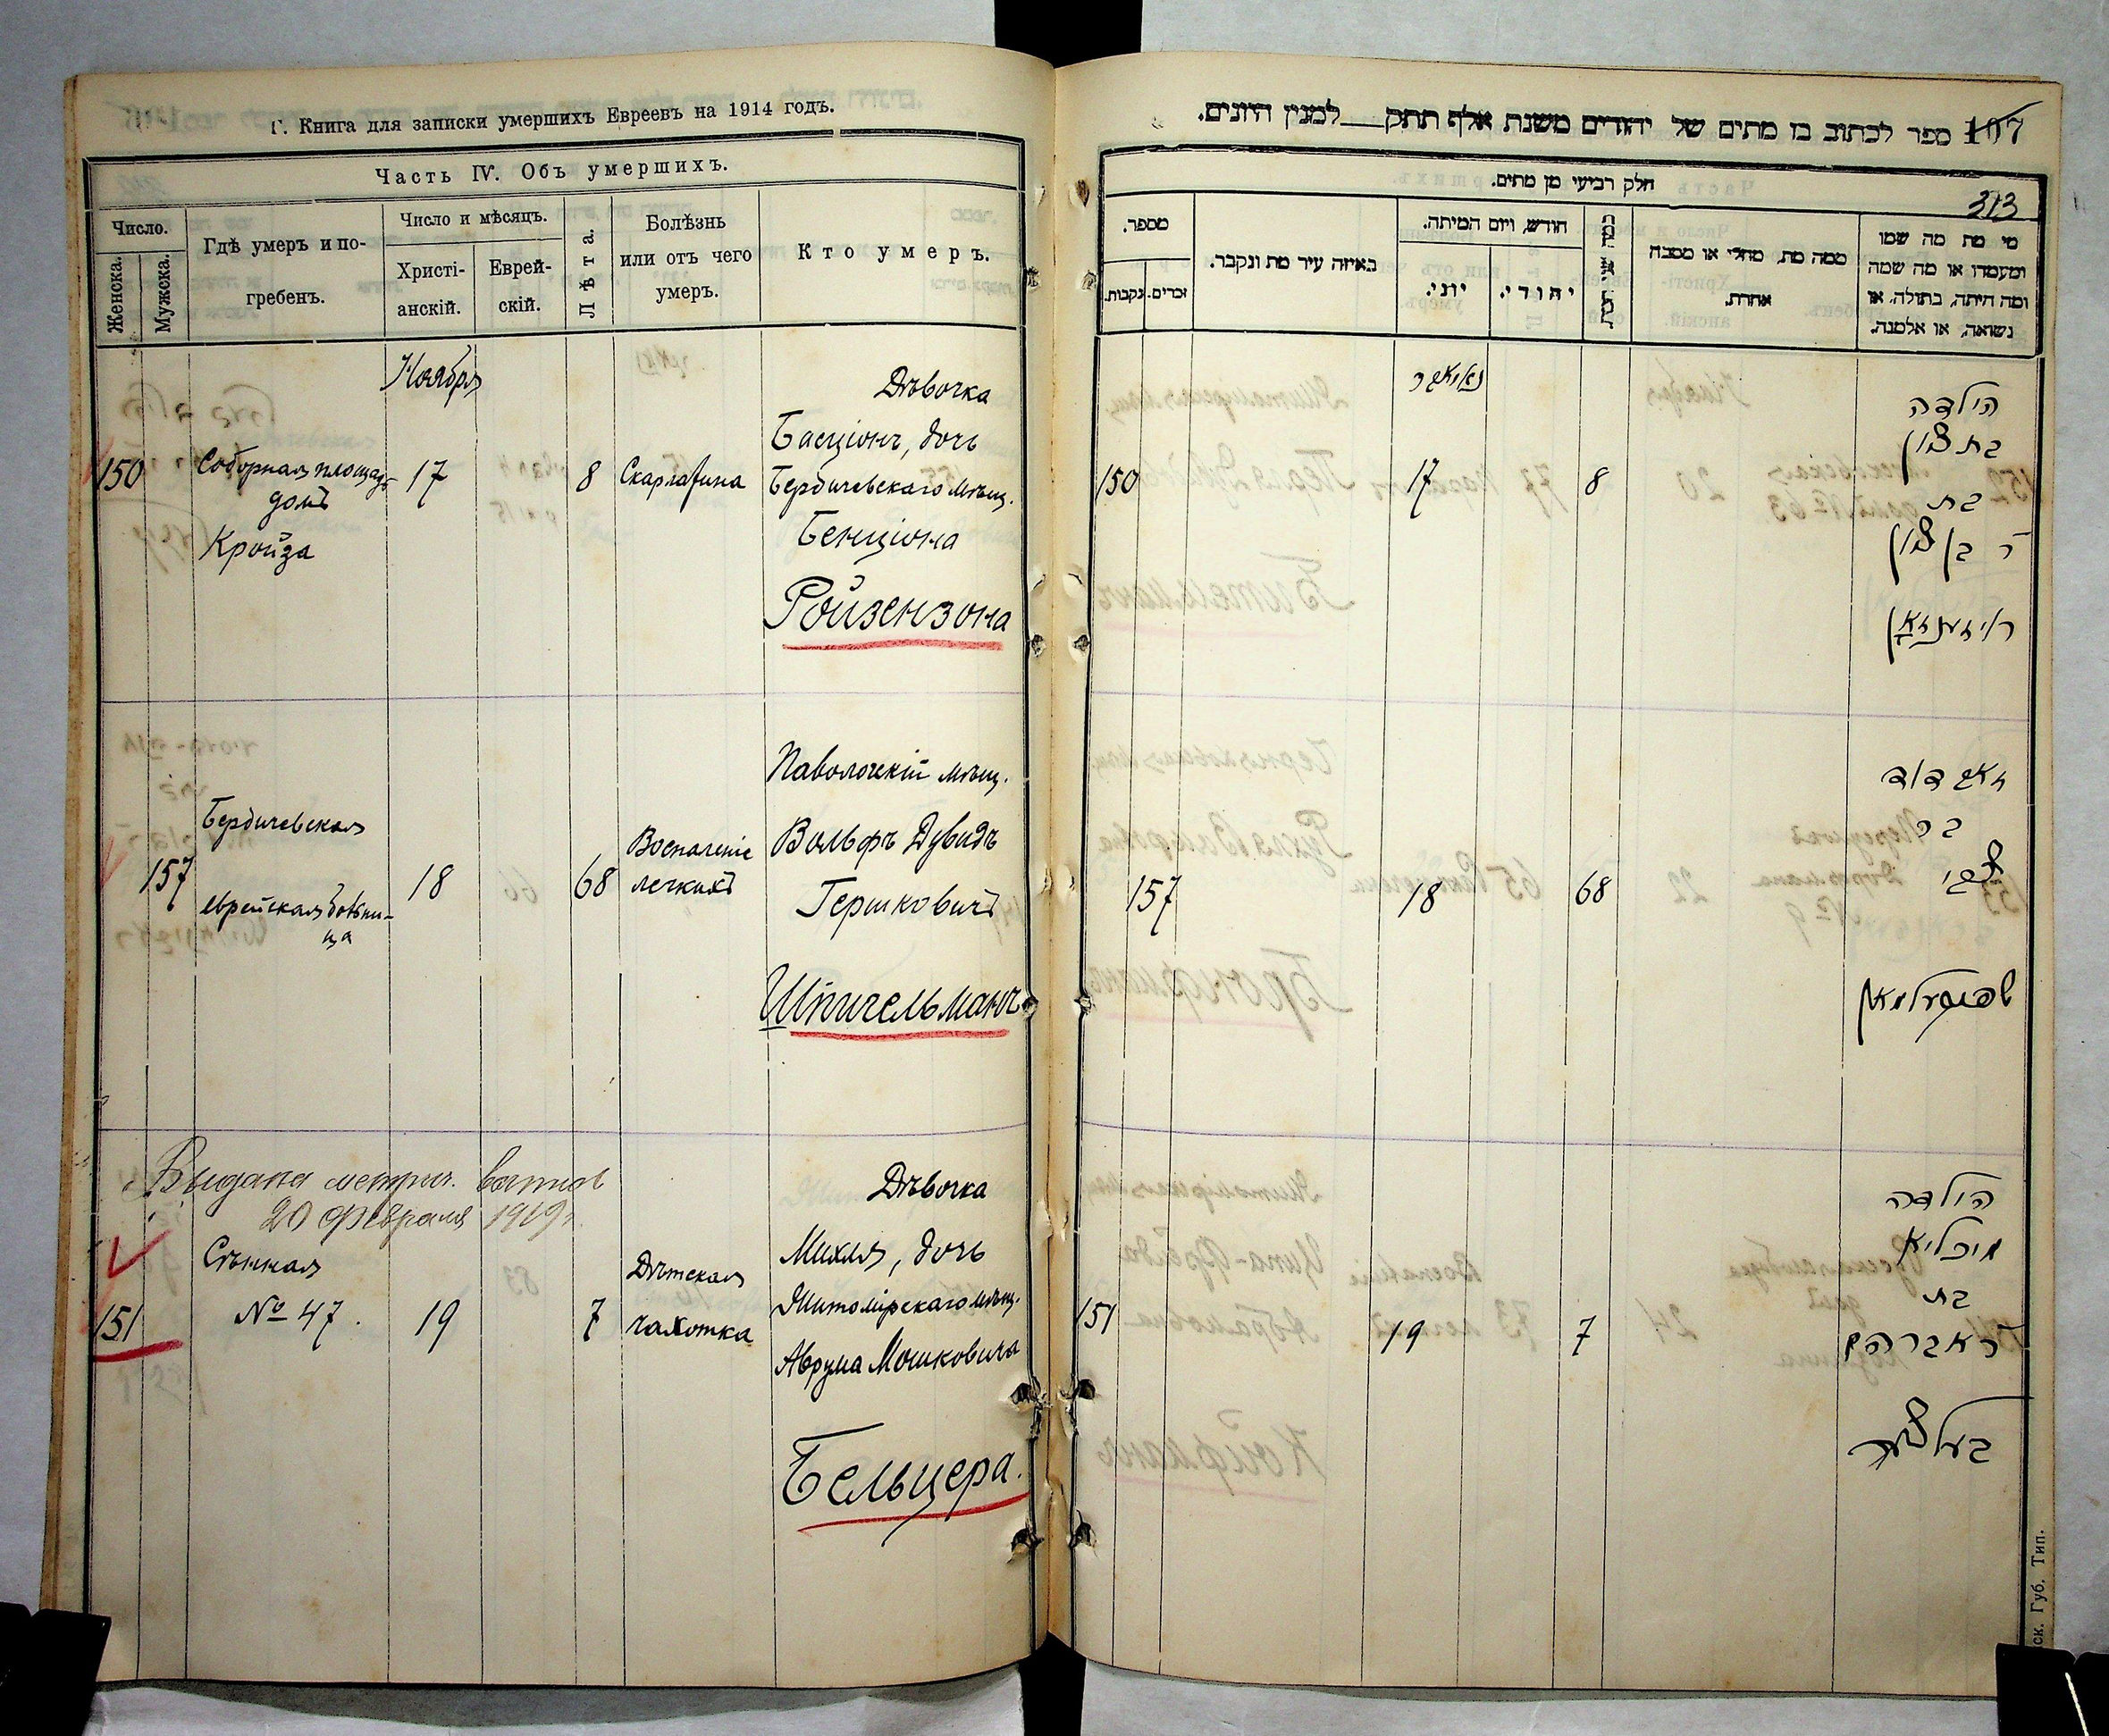 Г. Книга для записки умершихъ Евреевъ на 1914 годъ.
Часть IV. Объ умершихъ.
Число.
Женска.
Мужска.
Гдѣ умеръ и по-
гребенъ.
Число и мѣсяцъ.
Христі-
анскій.
Еврей-
скій.
Лѣта.
Болѣзнь
или отъ чего
умеръ.
Кто умеръ.
Ноября
150
Соборная площадь
домъ
Кройза
17
8
Скарлатина
Дѣвочка
Басціонъ, дочь
Бердичевскаго мѣщ.
Бенціона
Ройзензона
157
Бердичевская
еврейская больни-
ца
18
68
Воспаленіе
легкихъ
Паволочкій мѣщ.
Вольфъ Дувидъ
Гершковичъ
Шпигельманъ
Выдана метрич. выпись
20 февраля 1919 г.
151
Сѣнная
№ 47.
19
7
Дѣтская
чахотка
Дѣвочка
Михля, дочь
Житомірскаго мѣщ.
Аврума Мошковича
Бельцера.
107
ספר לכתוב בו מתים של יהודים משנת אלף תתק למנין היונים.
313
חלק רביעי מן מתים.
מספר.
נקבות.
זכרים.
באיזה עיר מת ונקבר.
חודש, ויום המיתה.
יוני.
יהודי.
ממה מת, מחלי או מסבה
אחרת.
מי מת מה שמו
ומעמדו או מה שמה
ומה היתה, בתולה, או
נשואה, או אלמנה.
נאיאבר
150
17
8
הילדה
בת ציון
בת
ר בן ציון
רויזענזאן
157
18
68
זאב דוד
בר
צבי
שפיגעלמאן
151
19
7
הילדה
מיכליא
בת
ר אברהם
בעלצער
ск. Губ. Тип.